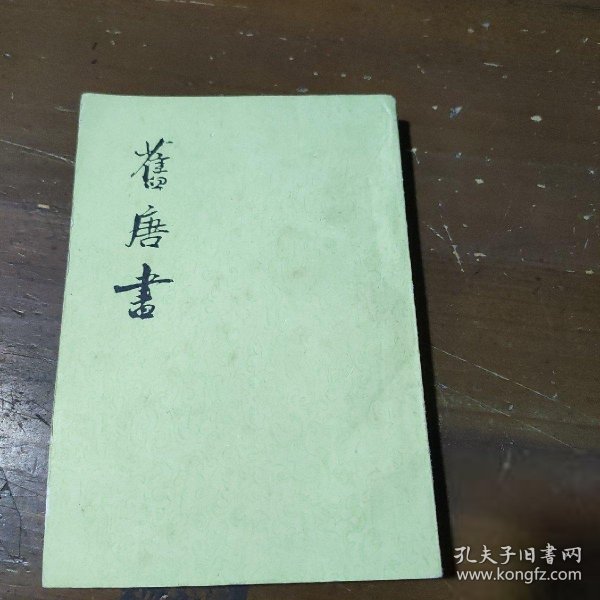 舊唐書
孔夫子旧書网
www.kongfz.com